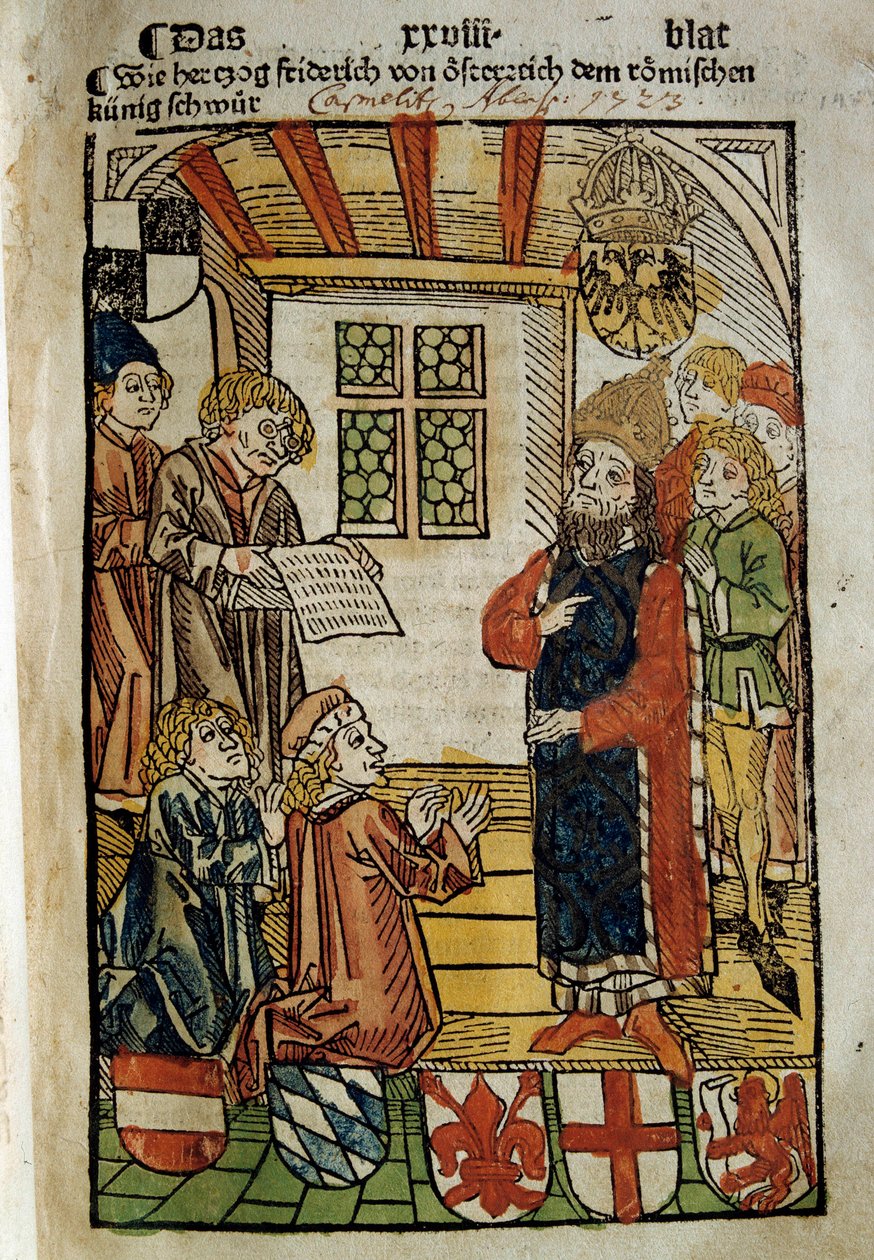 ¶ Das xxviii· blat
¶ Wie herczog friderich von ősterreich dem rőmischen
künig schwůr
Carmelit, Abens: 1723.